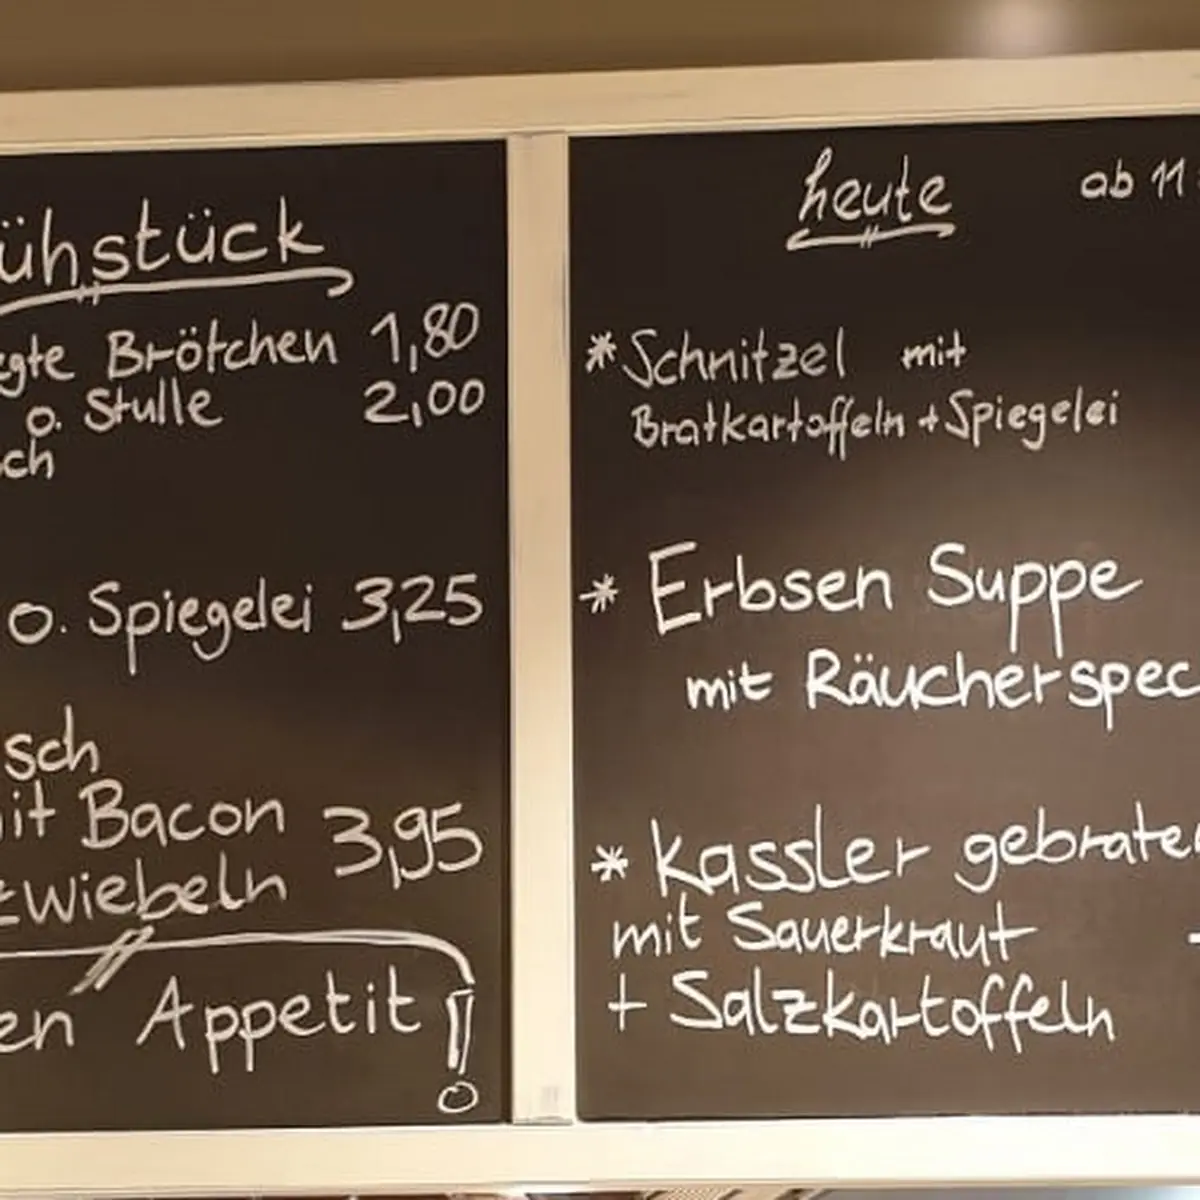 ühstück
egte Brötchen 1,80
o. Stulle 2,00
sch
o. Spiegelei 3,25
sch
mit Bacon
zwiebeln 3,95
en Appetit!
heute ab 11
* Schnitzel mit
Bratkartoffeln + Spiegelei
* Erbsen Suppe
mit Räucherspec
* Kassler gebraten
mit Sauerkraut
+ Salzkartoffeln